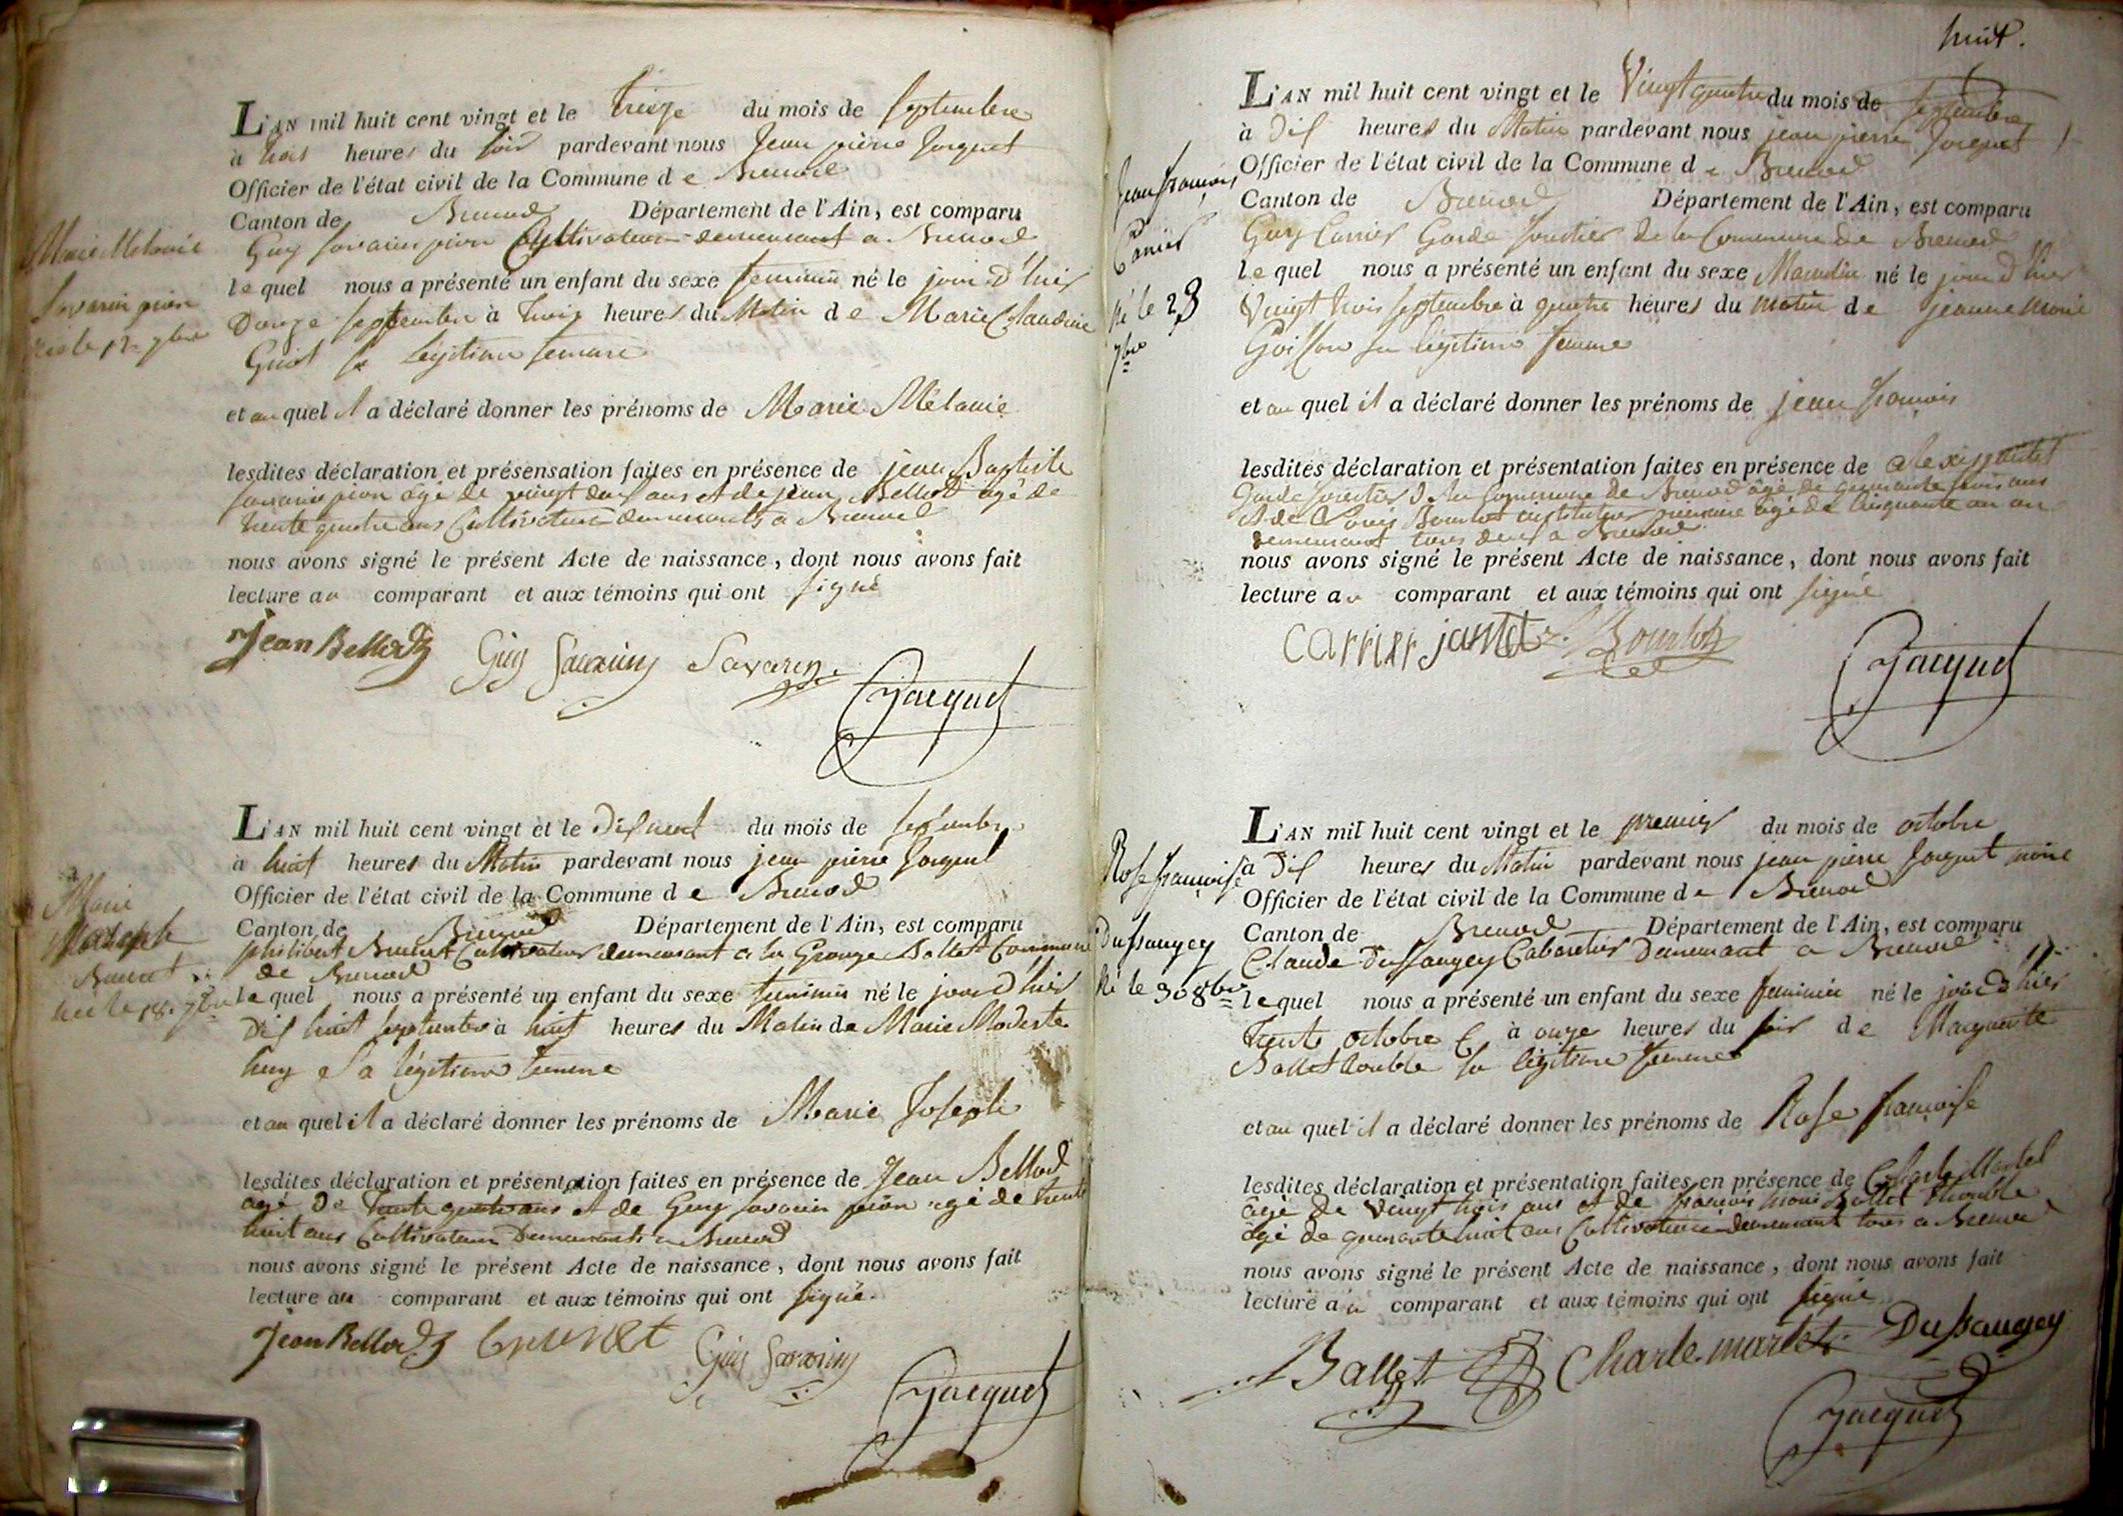 Marie Mélanie
Savarin pion
née le 12 7bre
L'AN mil huit cent vingt et le treize du mois de septembre
à trois heures du soir pardevant nous Jean pierre Jacquet
Officier de l'état civil de la Commune de Brenod
Canton de Brenod Département de l'Ain, est comparu
Guy Savarin pion Cultivateur demeurant a Brenod
lequel nous a présenté un enfant du sexe feminin né le jour d'hier
Douze septembre à trois heures du Matin de Marie Claudine
Guiot sa légitime femme
et au quel il a déclaré donner les prénoms de Marie Mélanie
lesdites déclaration et présensation faites en présence de jean Baptiste
savarin pion âgé de vingt deux ans et de jean Bellod âgé de
trente quatre ans Cultivateurs demeurants a Brenod
nous avons signé le présent Acte de naissance, dont nous avons fait
lecture au comparant et aux témoins qui ont signé
Jean Bellod Guy Savarin Savarin
Jacquet
Marie
Joseph
Brunet
née le 18 7bre
L'AN mil huit cent vingt et le Dix neuf du mois de septembre
à huit heures du Matin pardevant nous jean pierre Jacquet
Officier de l'état civil de la Commune de Brenod
Canton de Brenod Département de l'Ain, est comparu
philibert Brunet Cultivateur demeurant a la Grange Ballet Commune
de Brenod
lequel nous a présenté un enfant du sexe feminin né le jour d'hier
Dix huit septembre à huit heures du Matin de Marie Modeste
huy Sa légitime femme
et au quel il a déclaré donner les prénoms de Marie Joseph
lesdites déclaration et présentation faites en présence de Jean Bellod
agé De trente quatre ans et de Guy savarin pion agé de trente
huit ans Cultivateurs Demeurants a Brenod
nous avons signé le présent Acte de naissance, dont nous avons fait
lecture au comparant et aux témoins qui ont signé
Jean Bellod Brunet Guy Savarin
Jacquet
huit.
Jean françois
Carrier
Né le 23
7bre
L'AN mil huit cent vingt et le Vingt quatre du mois de septembre
à Dix heures du Matin pardevant nous jean pierre Jacquet
Officier de l'état civil de la Commune de Brenod
Canton de Brenod Département de l'Ain, est comparu
Guy Carrier Garde forestier de la Commune de Brenod
lequel nous a présenté un enfant du sexe Masculin né le jour d'hier
Vingt trois septembre à quatre heures du matin de jeanne marie
Goiffon sa légitime femme
et au quel il a déclaré donner les prénoms de jean françois
lesdites déclaration et présentation faites en présence de alexis jantet
Garde forestier De la Commune de Brenod âgé de quarante trois ans
et de Louis Bourlot instituteur primaire âgé de Cinquante un an
demeurant tous deux a Brenod
nous avons signé le présent Acte de naissance, dont nous avons fait
lecture au comparant et aux témoins qui ont signé
carrier jantet L. Bourlot
Jacquet
Rose françoise
Dussaugey
Né le 30 8bre
L'AN mil huit cent vingt et le premier du mois de octobre
à Dix heures du Matin pardevant nous jean pierre Jacquet maire
Officier de l'état civil de la Commune de Brenod
Canton de Brenod Département de l'Ain, est comparu
Claude Dussaugey Cabaretier Demeurant a Brenod
lequel nous a présenté un enfant du sexe feminin né le jour d'hier
trente octobre à onze heures du soir de Marguerite
Ballet Trouble sa légitime femme
et au quel il a déclaré donner les prénoms de Rose françoise
lesdites déclaration et présentation faites en présence de Charle Martel
âgé de vingt trois ans et de françois marie Ballet Trouble
âgé de quarante huit ans Cultivateurs demeurant tous a Brenod
nous avons signé le présent Acte de naissance, dont nous avons fait
lecture au comparant et aux témoins qui ont signé
Ballet Charle martel Dussaugey
Jacquet